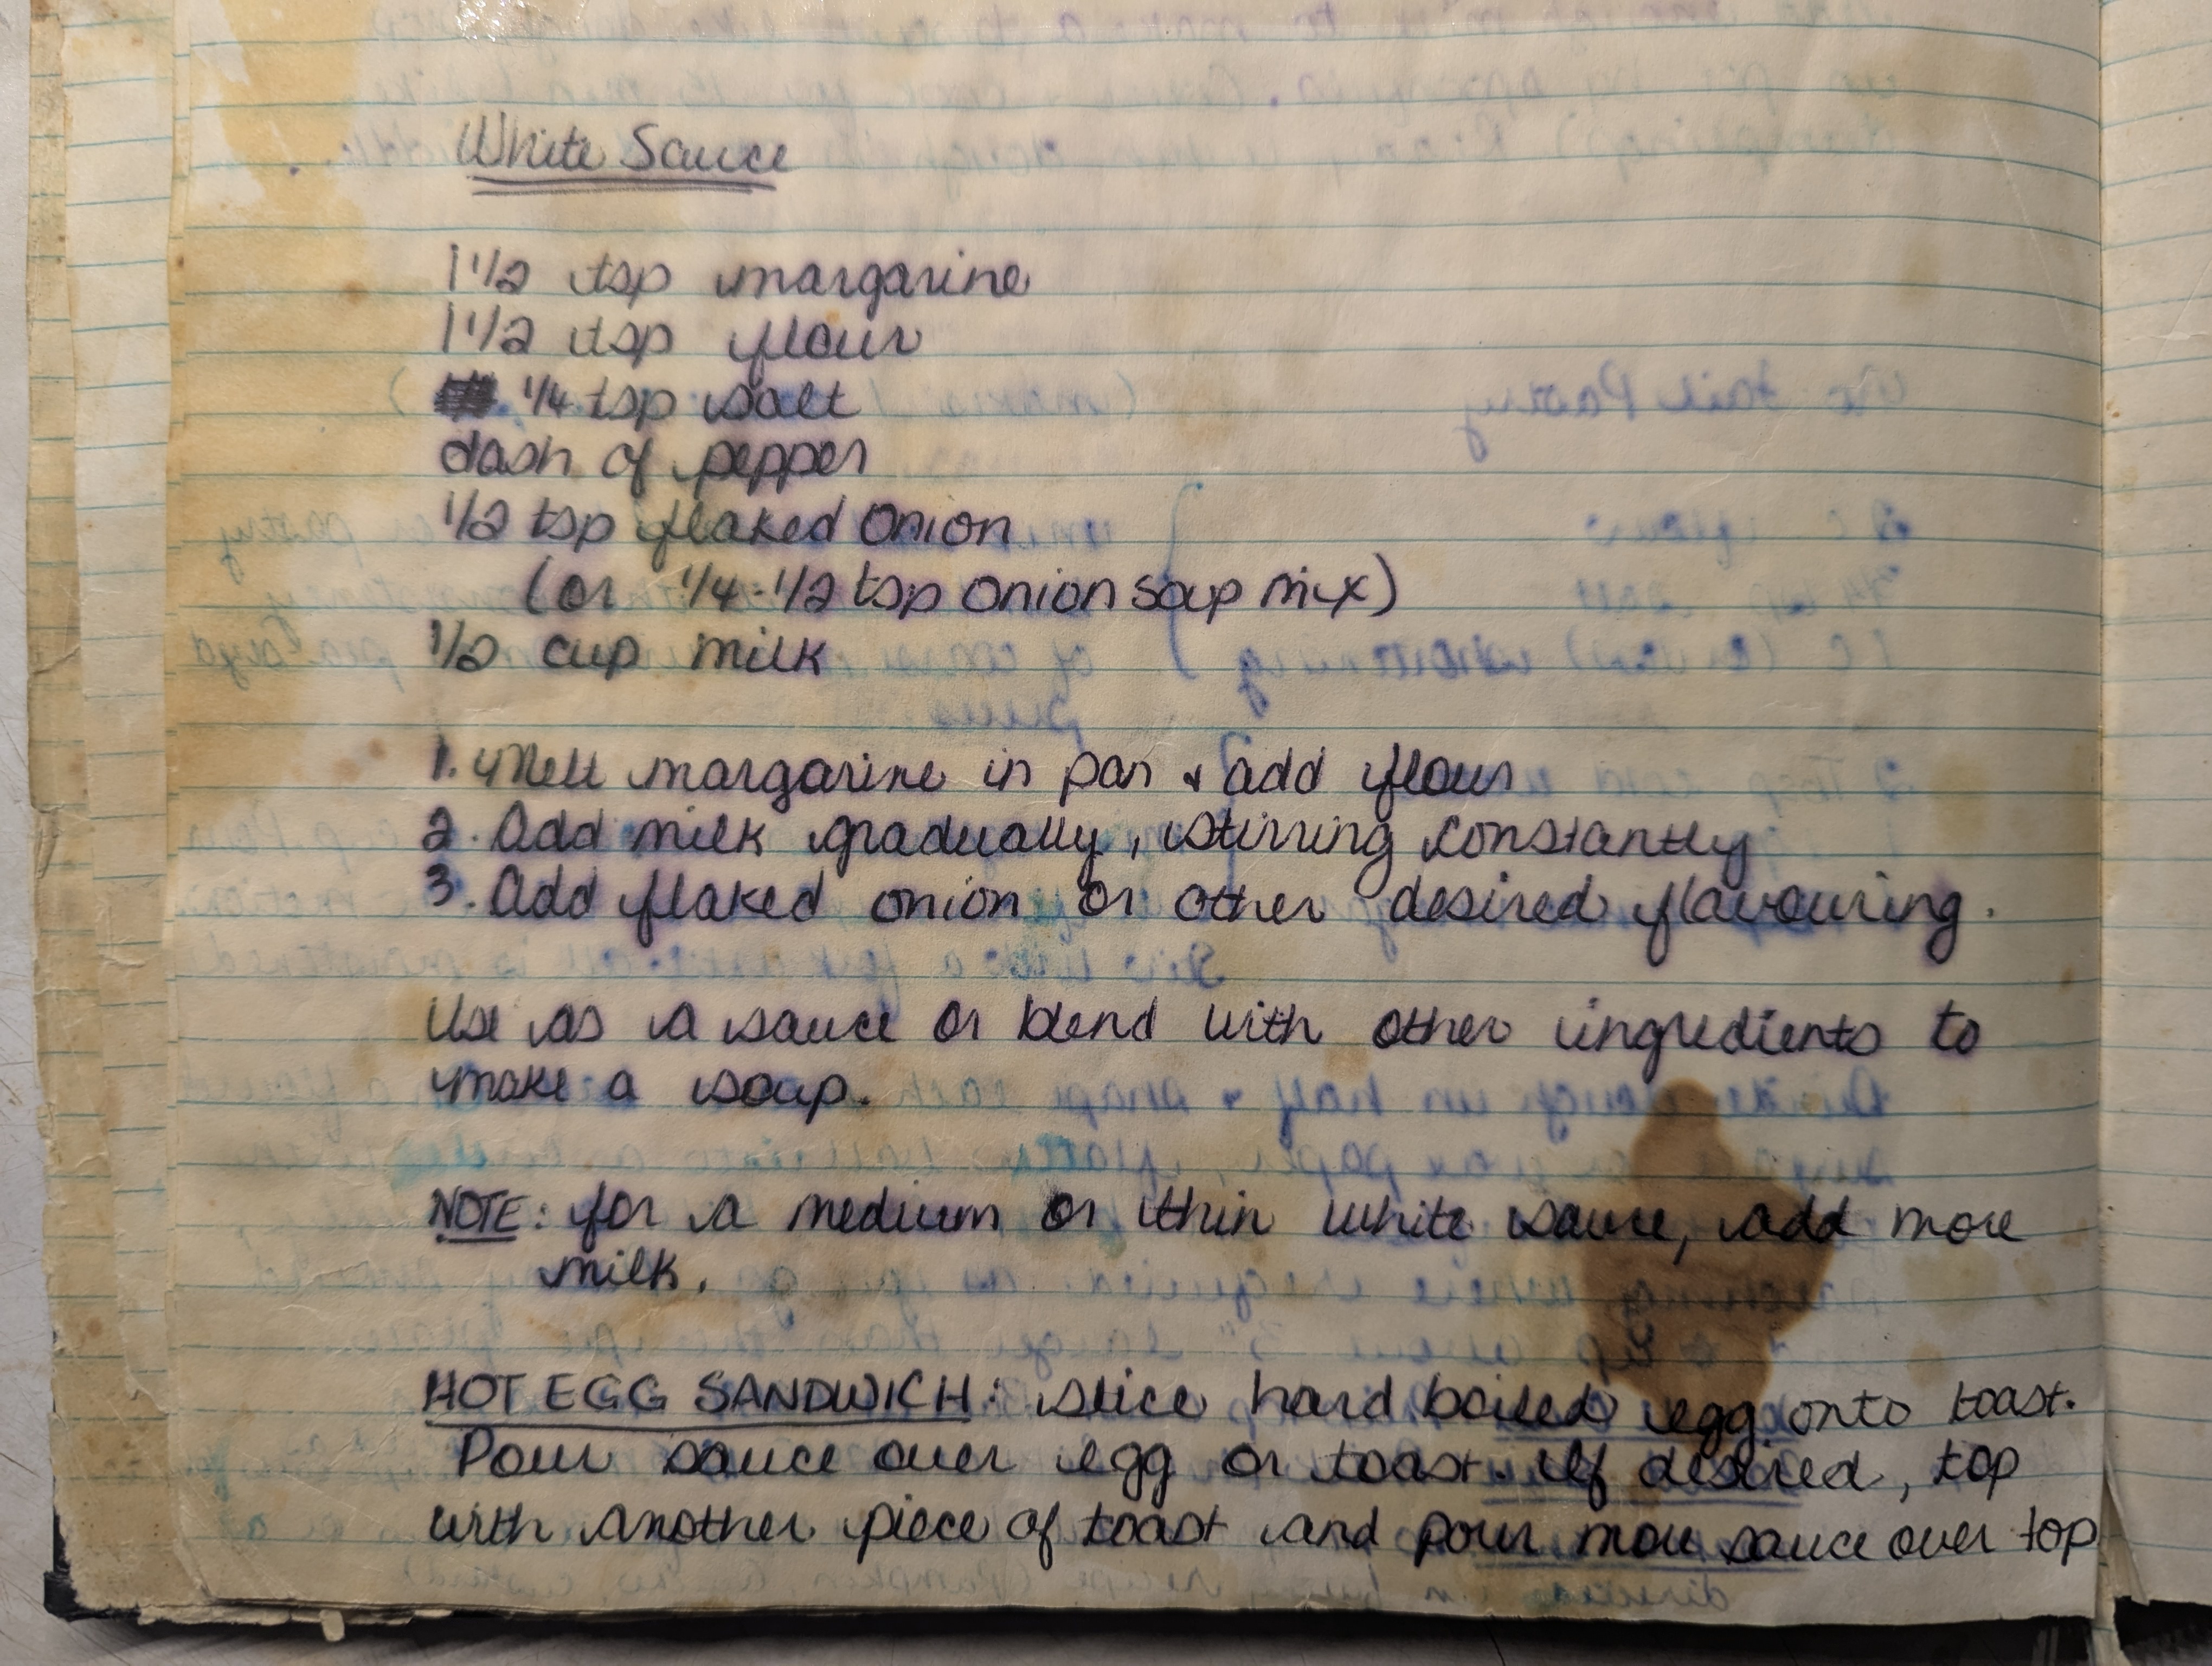 White Sauce
1 1/2 tsp margarine
1 1/2 tsp flour
1/4 tsp salt
dash of pepper
1/2 tsp flaked onion
(or 1/4-1/2 tsp onion soup mix)
1/2 cup milk
1. Melt margarine in pan & add flour
2. Add milk gradually, stirring constantly
3. Add flaked onion or other desired flavouring.
Use as a sauce or blend with other ingredients to
make a soup.
NOTE: for a medium or thin white sauce, add more
milk.
HOT EGG SANDWICH: slice hard boiled egg onto toast.
Pour sauce over egg or toast. If desired, top
with another piece of toast and pour more sauce over top